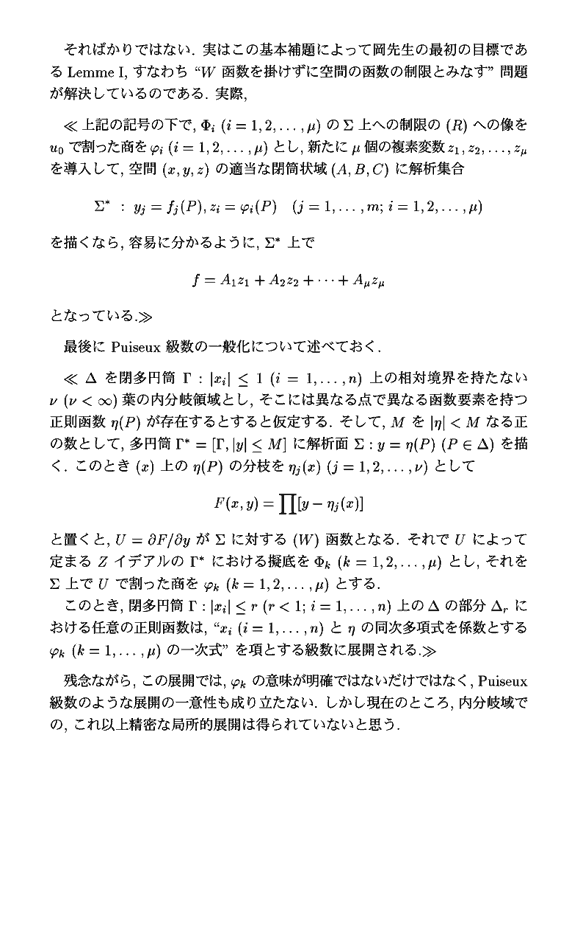 そればかりではない. 実はこの基本補題によって岡先生の最初の目標であ
る Lemme I, すなわち “W 函数を掛けずに空間の函数の制限とみなす” 問題
が解決しているのである. 実際,
≪ 上記の記号の下で, Φ_i (i = 1, 2, . . . , μ) の Σ 上への制限の (R) への像を
u_0 で割った商を φ_i (i = 1, 2, . . . , μ) とし, 新たに μ 個の複素変数 z_1, z_2, . . . , z_μ
を導入して, 空間 (x, y, z) の適当な閉筒状域 (A, B, C) に解析集合
Σ* : y_j = f_j(P), z_i = φ_i(P) (j = 1, . . . , m; i = 1, 2, . . . , μ)
を描くなら, 容易に分かるように, Σ* 上で
f = A_1z_1 + A_2z_2 + · · · + A_μz_μ
となっている.≫
最後に Puiseux 級数の一般化について述べておく.
≪ Δ を閉多円筒 Γ : |x_i| ≤ 1 (i = 1, . . . , n) 上の相対境界を持たない
ν (ν < ∞) 葉の内分岐領域とし, そこには異なる点で異なる函数要素を持つ
正則函数 η(P) が存在するとすると仮定する. そして, M を |η| < M なる正
の数として, 多円筒 Γ* = [Γ, |y| ≤ M] に解析面 Σ : y = η(P) (P ∈ Δ) を描
く. このとき (x) 上の η(P) の分枝を η_j(x) (j = 1, 2, . . . , ν) として
F(x, y) = ∏[y − η_j(x)]
と置くと, U = ∂F/∂y が Σ に対する (W) 函数となる. それで U によって
定まる Z イデアルの Γ* における擬底を Φ_k (k = 1, 2, . . . , μ) とし, それを
Σ 上で U で割った商を φ_k (k = 1, 2, . . . , μ) とする.
このとき, 閉多円筒 Γ : |x_i| ≤ r (r < 1; i = 1, . . . , n) 上の Δ の部分 Δ_r に
おける任意の正則函数は, “x_i (i = 1, . . . , n) と η の同次多項式を係数とする
φ_k (k = 1, . . . , μ) の一次式” を項とする級数に展開される.≫
残念ながら, この展開では, φ_k の意味が明確ではないだけではなく, Puiseux
級数のような展開の一意性も成り立たない. しかし現在のところ, 内分岐域で
の, これ以上精密な局所的展開は得られていないと思う.